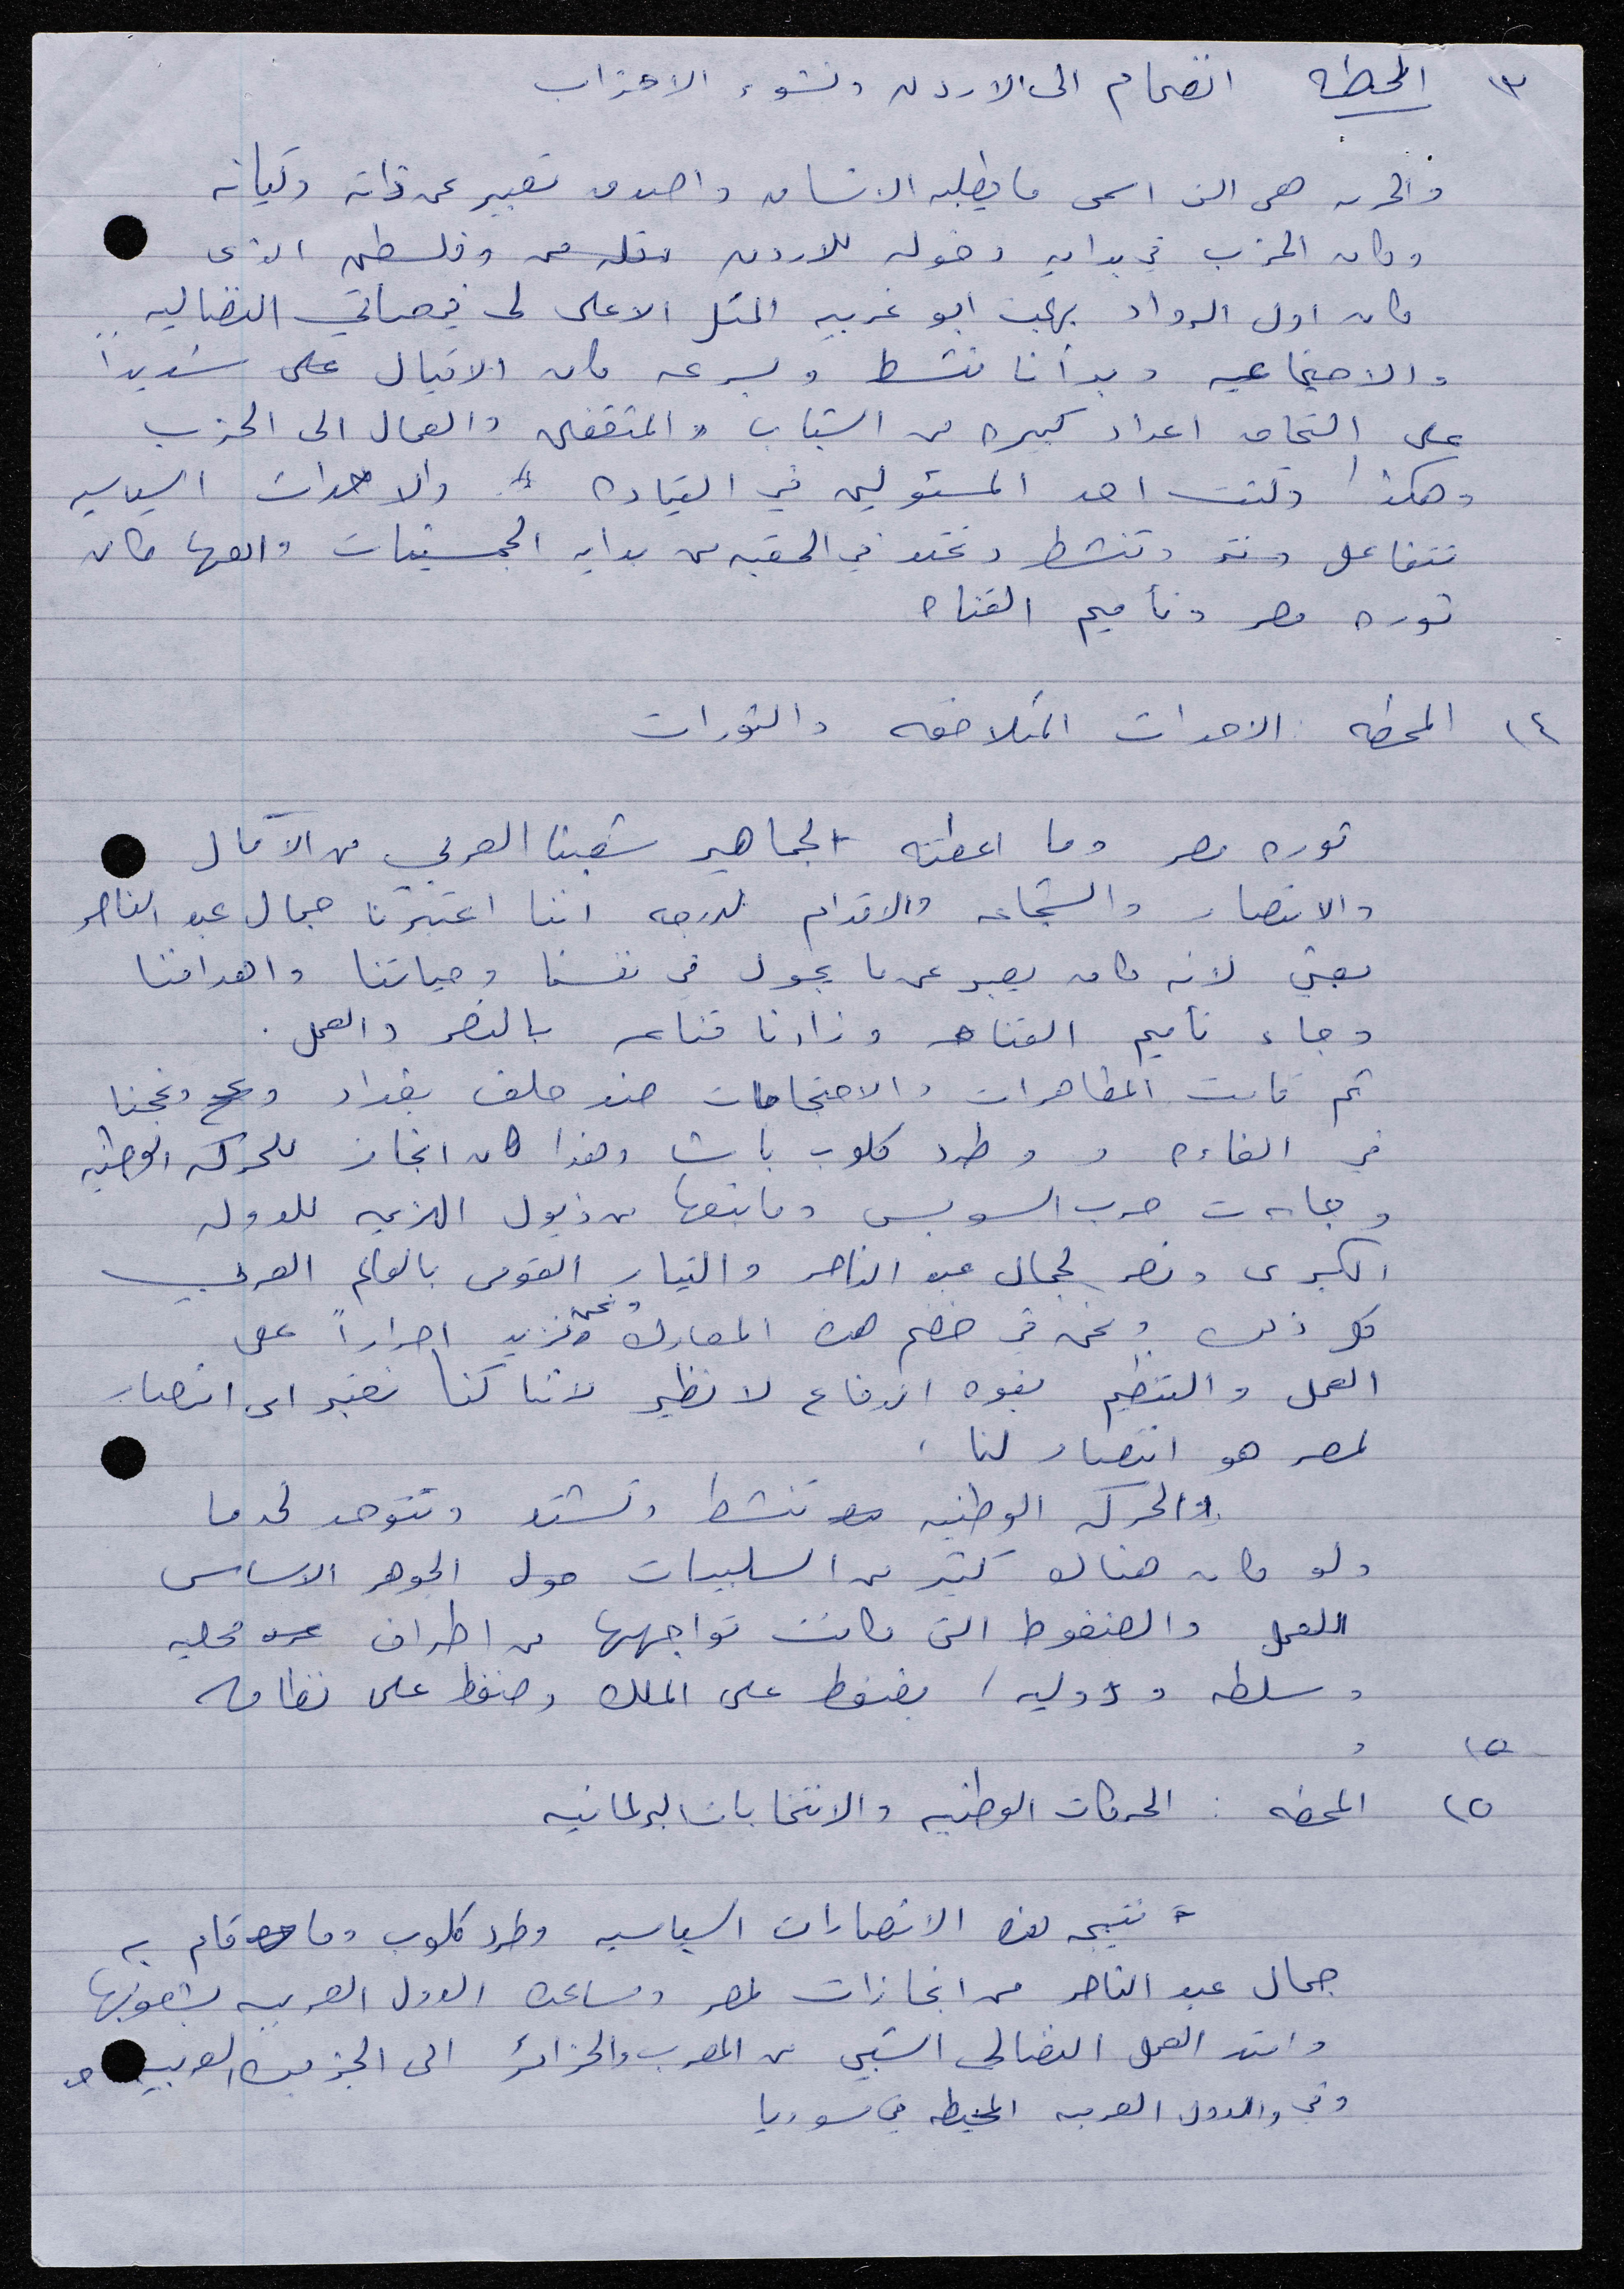 ١٣ المحطه انضمام الى الاردن ونشوء الاحزاب
والحريه هى اسمى ما يطلبه الانسان واصدق تعبير عن ذاته وكيانه
وكان الحزب في بدايه دخوله للاردن وفلسطين الذى
كان اول الرواد بهجت ابو غربيه المثل الاعلى لى في حياتي النضاليه
والاجتماعيه وبدأنا ننشط وبسرعه كان الاقبال على شديداً
على التحاق اعداد كبيره من الشباب والمثقفين والعمال الى الحزب
وهكذا وكنت احد المسئولين في القياده والاحداث السياسيه
تتفاعل وتنشط وتمتد في الحقبه من بدايه الخمسينات واهمها كان
ثوره مصر وتأميم القناه
١٤ المحطه : الاحداث المتلاحقه والثورات
ثوره مصر وما اعطته لجماهير شعبنا العربي من الآمال
والانتصار والشجاعه والاقدام لدرجه اننا اعتبرنا جمال عبد الناصر
بعثي لانه كان يعبر عن ما يجول في نفسنا وحياتنا واهدافنا
وجاء تأميم القناه وزادنا قناعه بالنصر والعمل .
ثم قامت المظاهرات والاحتجاجات ضد حلف بغداد ونجحنا
في الغاءه و وطرد كلوب باشا وهذا كان انجاز للحركه الوطنيه
وجاءت حرب السويس وما تبعها من ذيول الهزيمه للدول
الكبرى ونصر لجمال عبد الناصر والتيار القومى بالعالم العربي
كل ذلك ونحن في خضم هذه المعارك ونحن نزيد اصراراً على
العمل والتنظيم بقوه اندفاع لا نظير لاننا كنا نعتبر اى انتصار
لمصر هو انتصار لنا .
والحركه الوطنيه تنشط وتشتد وتتوحد لحد ما
ولو كان هناك كثير من السلبيات حول الجوهر الاساسى
للعمل والضغوط التى كانت تواجهها من اطراف محليه
وسلطه ودوليه / بضغط على الملك وضغط على نظامه
١٥ و
١٥ المحطه : الحركات الوطنيه والانتخابات البرلمانيه
نتيجه لهذه الانتصارات السياسيه وطرد كلوب وما قام به
جمال عبد الناصر من انجازات لمصر ومساعده الدول العربيه بشعوبها
وامتد العمل النضالى الشعبي من المغرب والجزائر الى الجزيره العربيه
وفي والدول العربيه المحيطه في سوريا